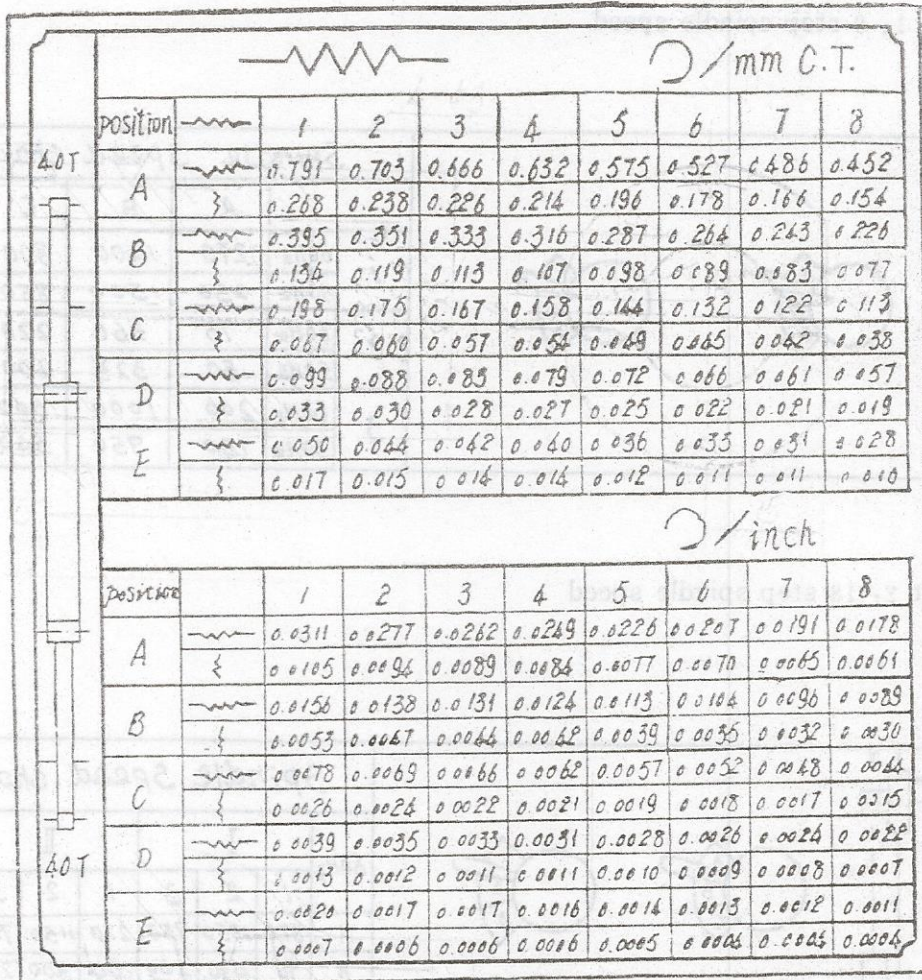 /mm C.T.
position 1 2 3 4 5 6 7 8
40T
A 0.791 0.703 0.666 0.632 0.575 0.527 0.486 0.452
0.268 0.238 0.226 0.214 0.196 0.178 0.166 0.154
B 0.395 0.351 0.333 0.316 0.287 0.264 0.243 0.226
0.134 0.119 0.113 0.107 0.098 0.089 0.083 0.077
C 0.198 0.175 0.167 0.158 0.144 0.132 0.122 0.113
0.067 0.060 0.057 0.054 0.049 0.045 0.042 0.038
D 0.099 0.088 0.083 0.079 0.072 0.066 0.061 0.057
0.033 0.030 0.028 0.027 0.025 0.022 0.021 0.019
E 0.050 0.044 0.042 0.040 0.036 0.033 0.031 0.028
0.017 0.015 0.014 0.014 0.012 0.011 0.011 0.010
/inch
position 1 2 3 4 5 6 7 8
A 0.0311 0.0277 0.0262 0.0249 0.0226 0.0207 0.0191 0.0178
0.0105 0.0094 0.0089 0.0084 0.0077 0.0070 0.0065 0.0061
B 0.0156 0.0138 0.0131 0.0124 0.0113 0.0104 0.0096 0.0089
0.0053 0.0047 0.0044 0.0042 0.0039 0.0035 0.0032 0.0030
C 0.0078 0.0069 0.0066 0.0062 0.0057 0.0052 0.0048 0.0044
0.0026 0.0024 0.0022 0.0021 0.0019 0.0018 0.0017 0.0015
40T
D 0.0039 0.0035 0.0033 0.0031 0.0028 0.0026 0.0024 0.0022
0.0013 0.0012 0.0011 0.0011 0.0010 0.0009 0.0008 0.0007
E 0.0020 0.0017 0.0017 0.0016 0.0014 0.0013 0.0012 0.0011
0.0007 0.0006 0.0006 0.0006 0.0005 0.0004 0.0004 0.0004